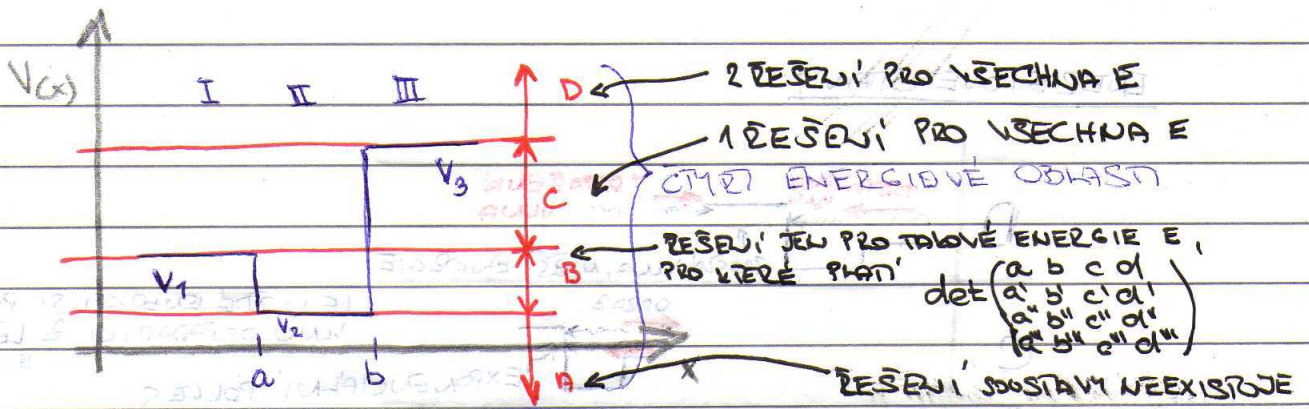 V(x)
I II III
D 2 ŘEŠENÍ PRO VŠECHNA E
1 ŘEŠENÍ PRO VŠECHNA E
V3
C
ČTYŘI ENERGIOVÉ OBLASTI
ŘEŠENÍ JEN PRO TAKOVÉ ENERGIE E,
PRO KTERÉ PLATÍ
V1
B
det ( a b c d
a' b' c' d'
a'' b'' c'' d''
a''' b''' c''' d''' )
V2
a b
x
A ŘEŠENÍ SOUSTAVY NEEXISTUJE